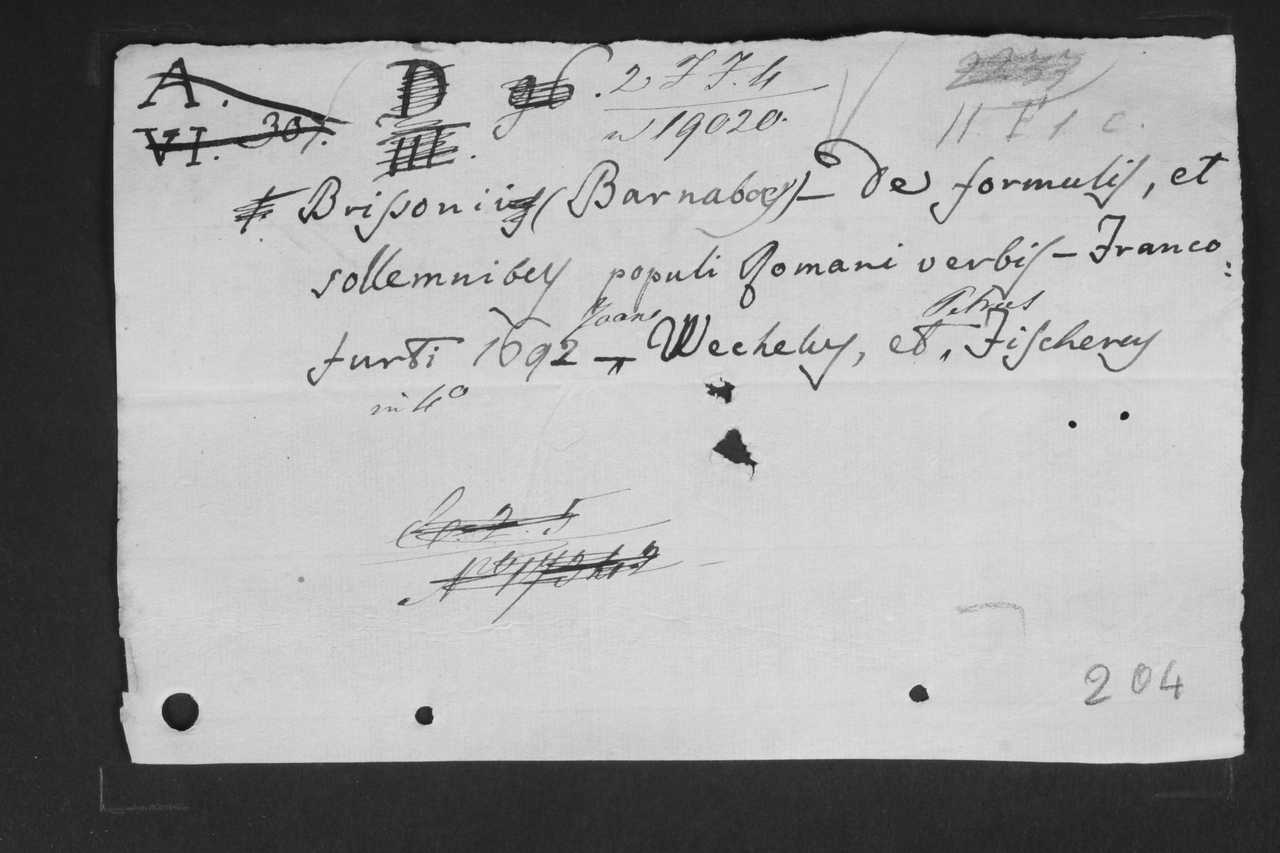 A. D 2 7 7. 4
VI. 307. III. n 19020.
II. F 1 c.
Brissonius (Barnabas) – De formulis, et
sollemnibus populi Romani verbis – Franco:
furti 1692 – Joans Wechelus, et, Petrus Fischerus
in 4°
204